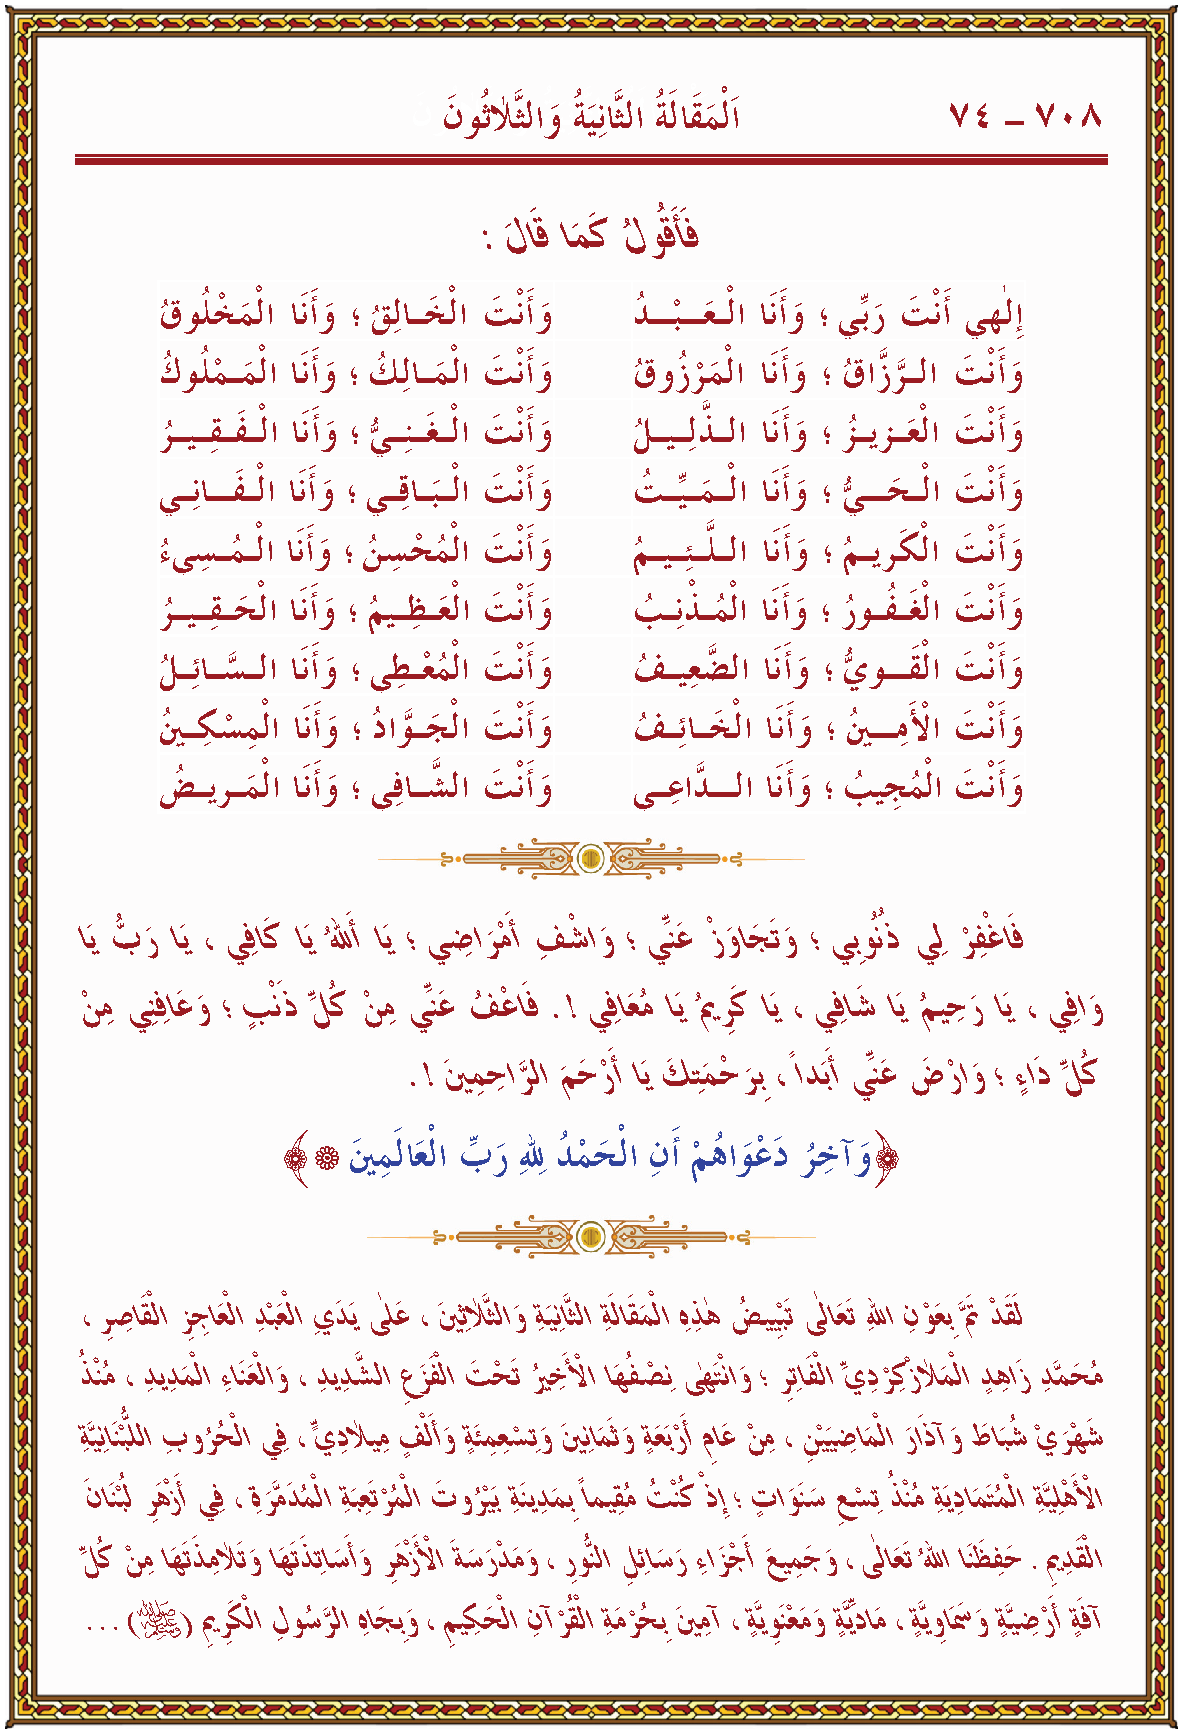 ٧٠٨ – ٧٤
اَلْمَقَالَةُ الثَّانِيَةُ وَالثَّلَاثُونَ
فَأَقُولُ كَمَا قَالَ :
إِلٰهِي أَنْتَ رَبِّي ؛ وَأَنَا الْعَبْدُ وَأَنْتَ الْخَالِقُ ؛ وَأَنَا الْمَخْلُوقُ
وَأَنْتَ الرَّزَّاقُ ؛ وَأَنَا الْمَرْزُوقُ وَأَنْتَ الْمَالِكُ ؛ وَأَنَا الْمَمْلُوكُ
وَأَنْتَ الْعَزِيزُ ؛ وَأَنَا الذَّلِيلُ وَأَنْتَ الْغَنِيُّ ؛ وَأَنَا الْفَقِيرُ
وَأَنْتَ الْحَيُّ ؛ وَأَنَا الْمَيِّتُ وَأَنْتَ الْبَاقِي ؛ وَأَنَا الْفَانِي
وَأَنْتَ الْكَرِيمُ ؛ وَأَنَا اللَّئِيمُ وَأَنْتَ الْمُحْسِنُ ؛ وَأَنَا الْمُسِىءُ
وَأَنْتَ الْغَفُورُ ؛ وَأَنَا الْمُذْنِبُ وَأَنْتَ الْعَظِيمُ ؛ وَأَنَا الْحَقِيرُ
وَأَنْتَ الْقَوِيُّ ؛ وَأَنَا الضَّعِيفُ وَأَنْتَ الْمُعْطِى ؛ وَأَنَا السَّائِلُ
وَأَنْتَ الْأَمِينُ ؛ وَأَنَا الْخَائِفُ وَأَنْتَ الْجَوَّادُ ؛ وَأَنَا الْمِسْكِينُ
وَأَنْتَ الْمُجِيبُ ؛ وَأَنَا الدَّاعِى وَأَنْتَ الشَّافِى ؛ وَأَنَا الْمَرِيضُ
فَاغْفِرْ لِي ذُنُوبِي ؛ وَتَجَاوَزْ عَنِّي ؛ وَاشْفِ أَمْرَاضِي ؛ يَا أَللهُ يَا كَافِي ، يَا رَبُّ يَا
وَافِي ، يَا رَحِيمُ يَا شَافِي ، يَا كَرِيمُ يَا مُعَافِي ! . فَاعْفُ عَنِّي مِنْ كُلِّ ذَنْبٍ ؛ وَعَافِنِي مِنْ
كُلِّ دَاءٍ ؛ وَارْضَ عَنِّي أَبَداً ، بِرَحْمَتِكَ يَا أَرْحَمَ الرَّاحِمِينَ ! .
﴿وَآخِرُ دَعْوَاهُمْ أَنِ الْحَمْدُ لِلهِ رَبِّ الْعَالَمِينَ ۞﴾
لَقَدْ تَمَّ بِعَوْنِ اللهِ تَعَالٰى تَبْيِيضُ هٰذِهِ الْمَقَالَةِ الثَّانِيَةِ وَالثَّلَاثِينَ ، عَلٰى يَدَيِ الْعَبْدِ الْعَاجِزِ الْقَاصِرِ ،
مُحَمَّدِ زَاهِدِ الْمَلَازْكِرْدِيِّ الْفَاتِرِ ؛ وَانْتَهٰى نِصْفُهَا الْأَخِيرُ تَحْتَ الْفَزَعِ الشَّدِيدِ ، وَالْعَنَاءِ الْمَدِيدِ ، مُنْذُ
شَهْرَيْ شُبَاطَ وَآذَارَ الْمَاضِيَيْنِ ، مِنْ عَامِ أَرْبَعَةٍ وَثَمَانِينَ وَتِسْعِمِئَةٍ وَأَلْفٍ مِيلَادِيٍّ ، فِي الْحُرُوبِ اللُّبْنَانِيَّةِ
الْأَهْلِيَّةِ الْمُتَمَادِيَةِ مُنْذُ تِسْعِ سَنَوَاتٍ ؛ إِذْ كُنْتُ مُقِيماً بِمَدِينَةِ بَيْرُوتَ الْمُرْتَعِبَةِ الْمُدَمَّرَةِ ، فِي أَزْهَرِ لُبْنَانَ
الْقَدِيمِ . حَفِظَنَا اللهُ تَعَالٰى ، وَجَمِيعَ أَجْزَاءِ رَسَائِلِ النُّورِ ، وَمَدْرَسَةَ الْأَزْهَرِ وَأَسَاتِذَتَهَا وَتَلَامِذَتَهَا مِنْ كُلِّ
آفَةٍ أَرْضِيَّةٍ وَسَمَاوِيَّةٍ ، مَادِّيَّةٍ وَمَعْنَوِيَّةٍ ، آمِينَ بِحُرْمَةِ الْقُرْآنِ الْحَكِيمِ ، وَبِجَاهِ الرَّسُولِ الْكَرِيمِ (ﷺ) ...